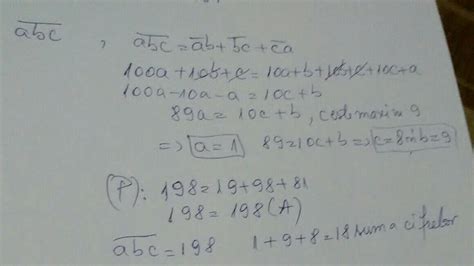 abc , abc = ab + bc + ca
100a + 10b + c = 10a + b + 10b + c + 10c + a
100a - 10a - a = 10c + b
89a = 10c + b , c maxim 9
=> a = 1 89 = 10c + b => c = 8 b = 9
(P): 198 = 19 + 98 + 81
198 = 198 (A)
abc = 198 1 + 9 + 8 = 18 suma cifrelor